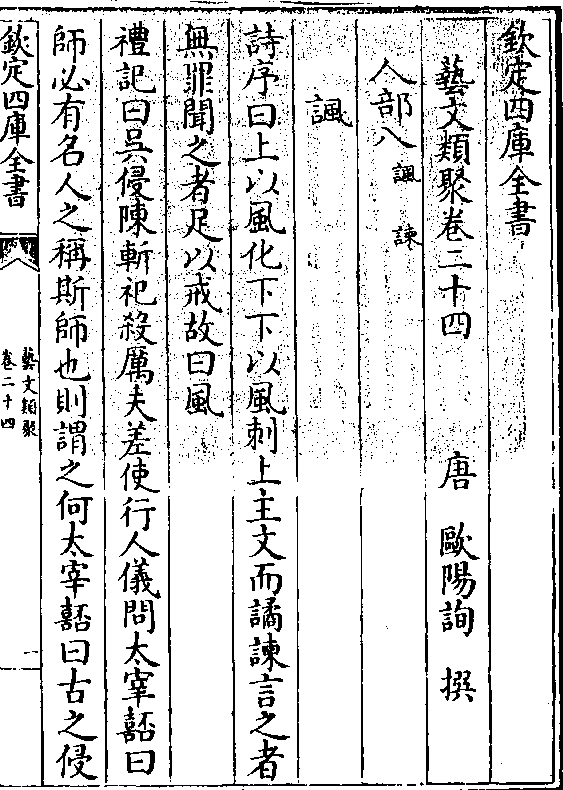 欽定四庫全書
藝文類聚卷二十四　唐　歐陽詢　撰
人部八 諷 諫
諷
詩序曰上以風化下下以風刺上主文而譎諫言之者
無罪聞之者足以戒故曰風
禮記曰吳侵陳斬祀殺厲夫差使行人儀問太宰嚭曰
師必有名人之稱斯師也則謂之何太宰嚭曰古之侵
欽定四庫全書
藝文類聚
卷二十四
一